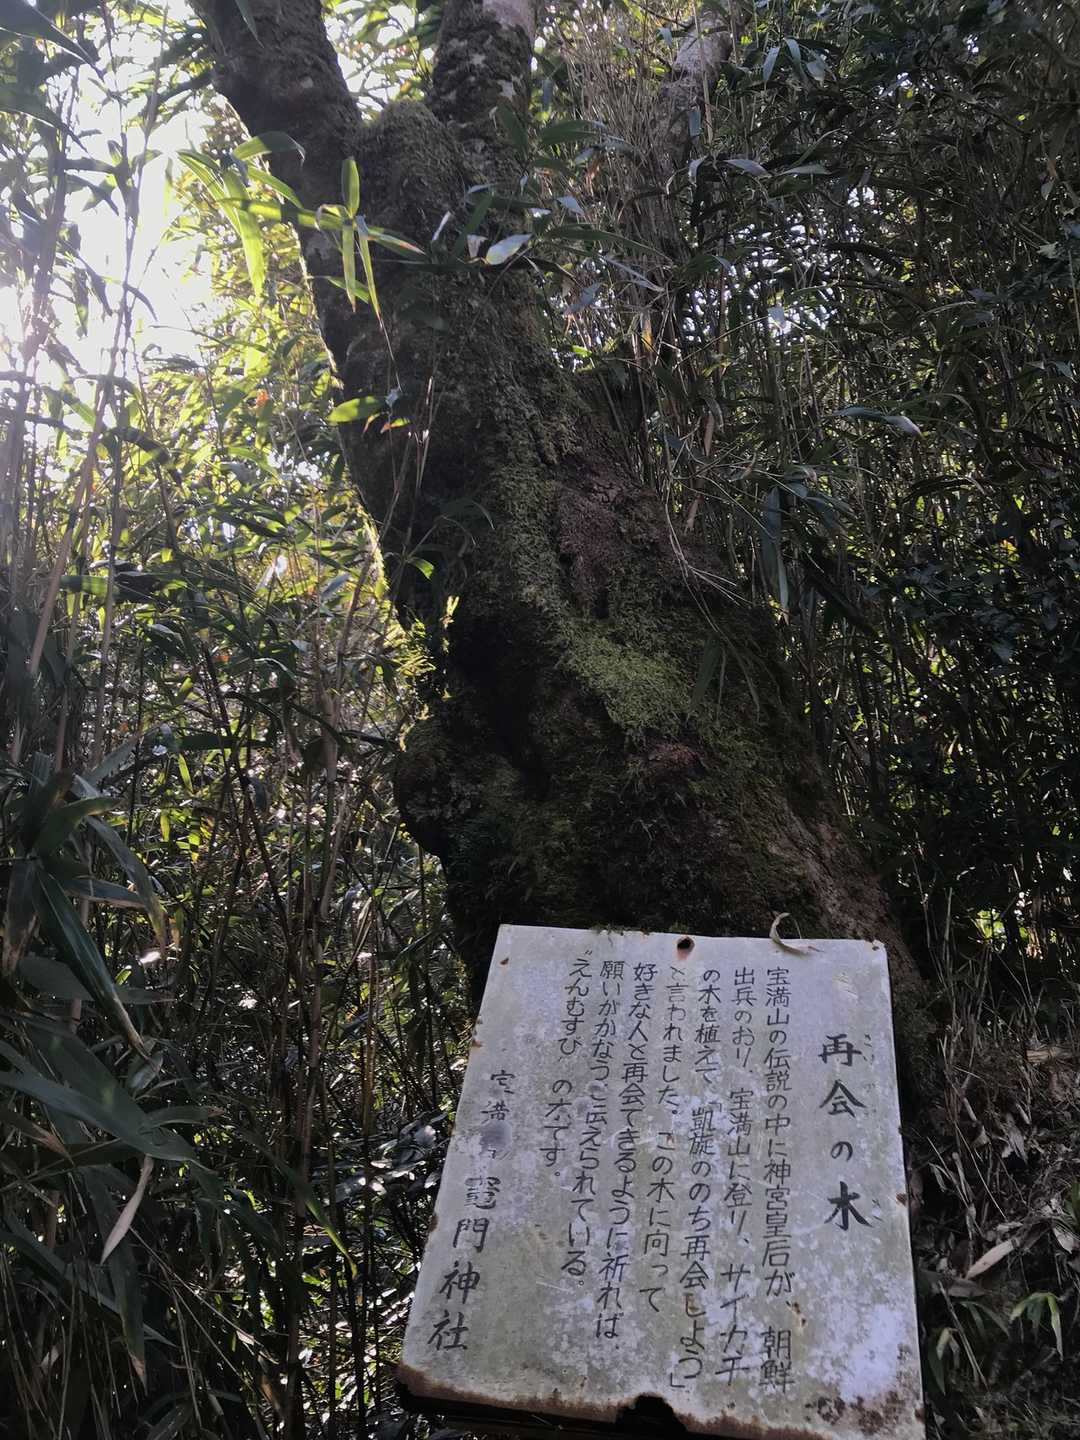 再会の木
宝満山の伝説の中に神宮皇后が、朝鮮
出兵のおり、宝満山に登り、サイカチ
の木を植えて、「凱旋ののち再会しよう」
と言われました。この木に向って
好きな人と再会できるように祈れば、
願いがかなうと伝えられている。
“えんむすび”の木です。
宝満
竈門神社